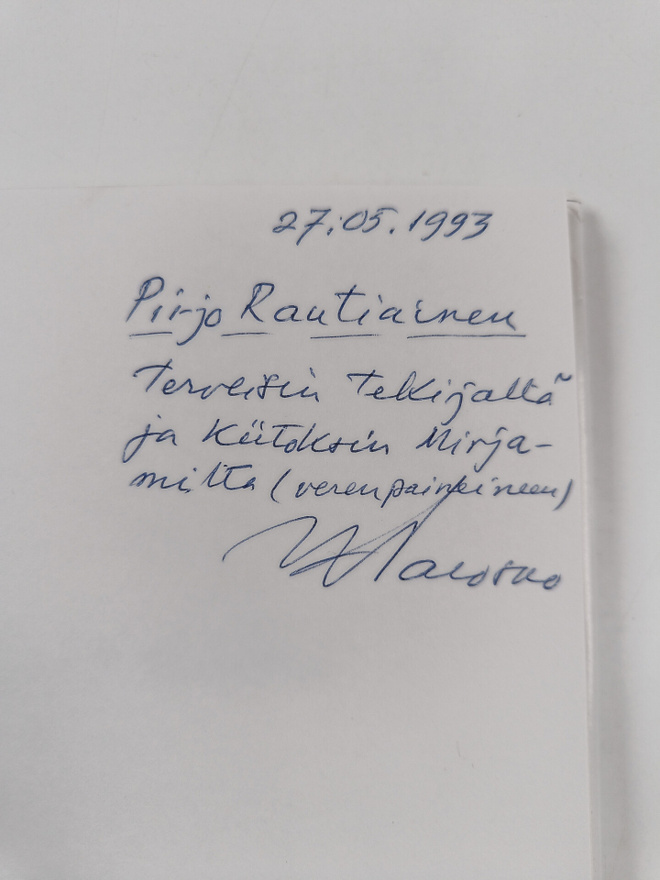 27.05.1993
Pirjo Rautiainen
terveisin tekijältä
ja kiitoksin Mirja-
milta (verenpaineineen)